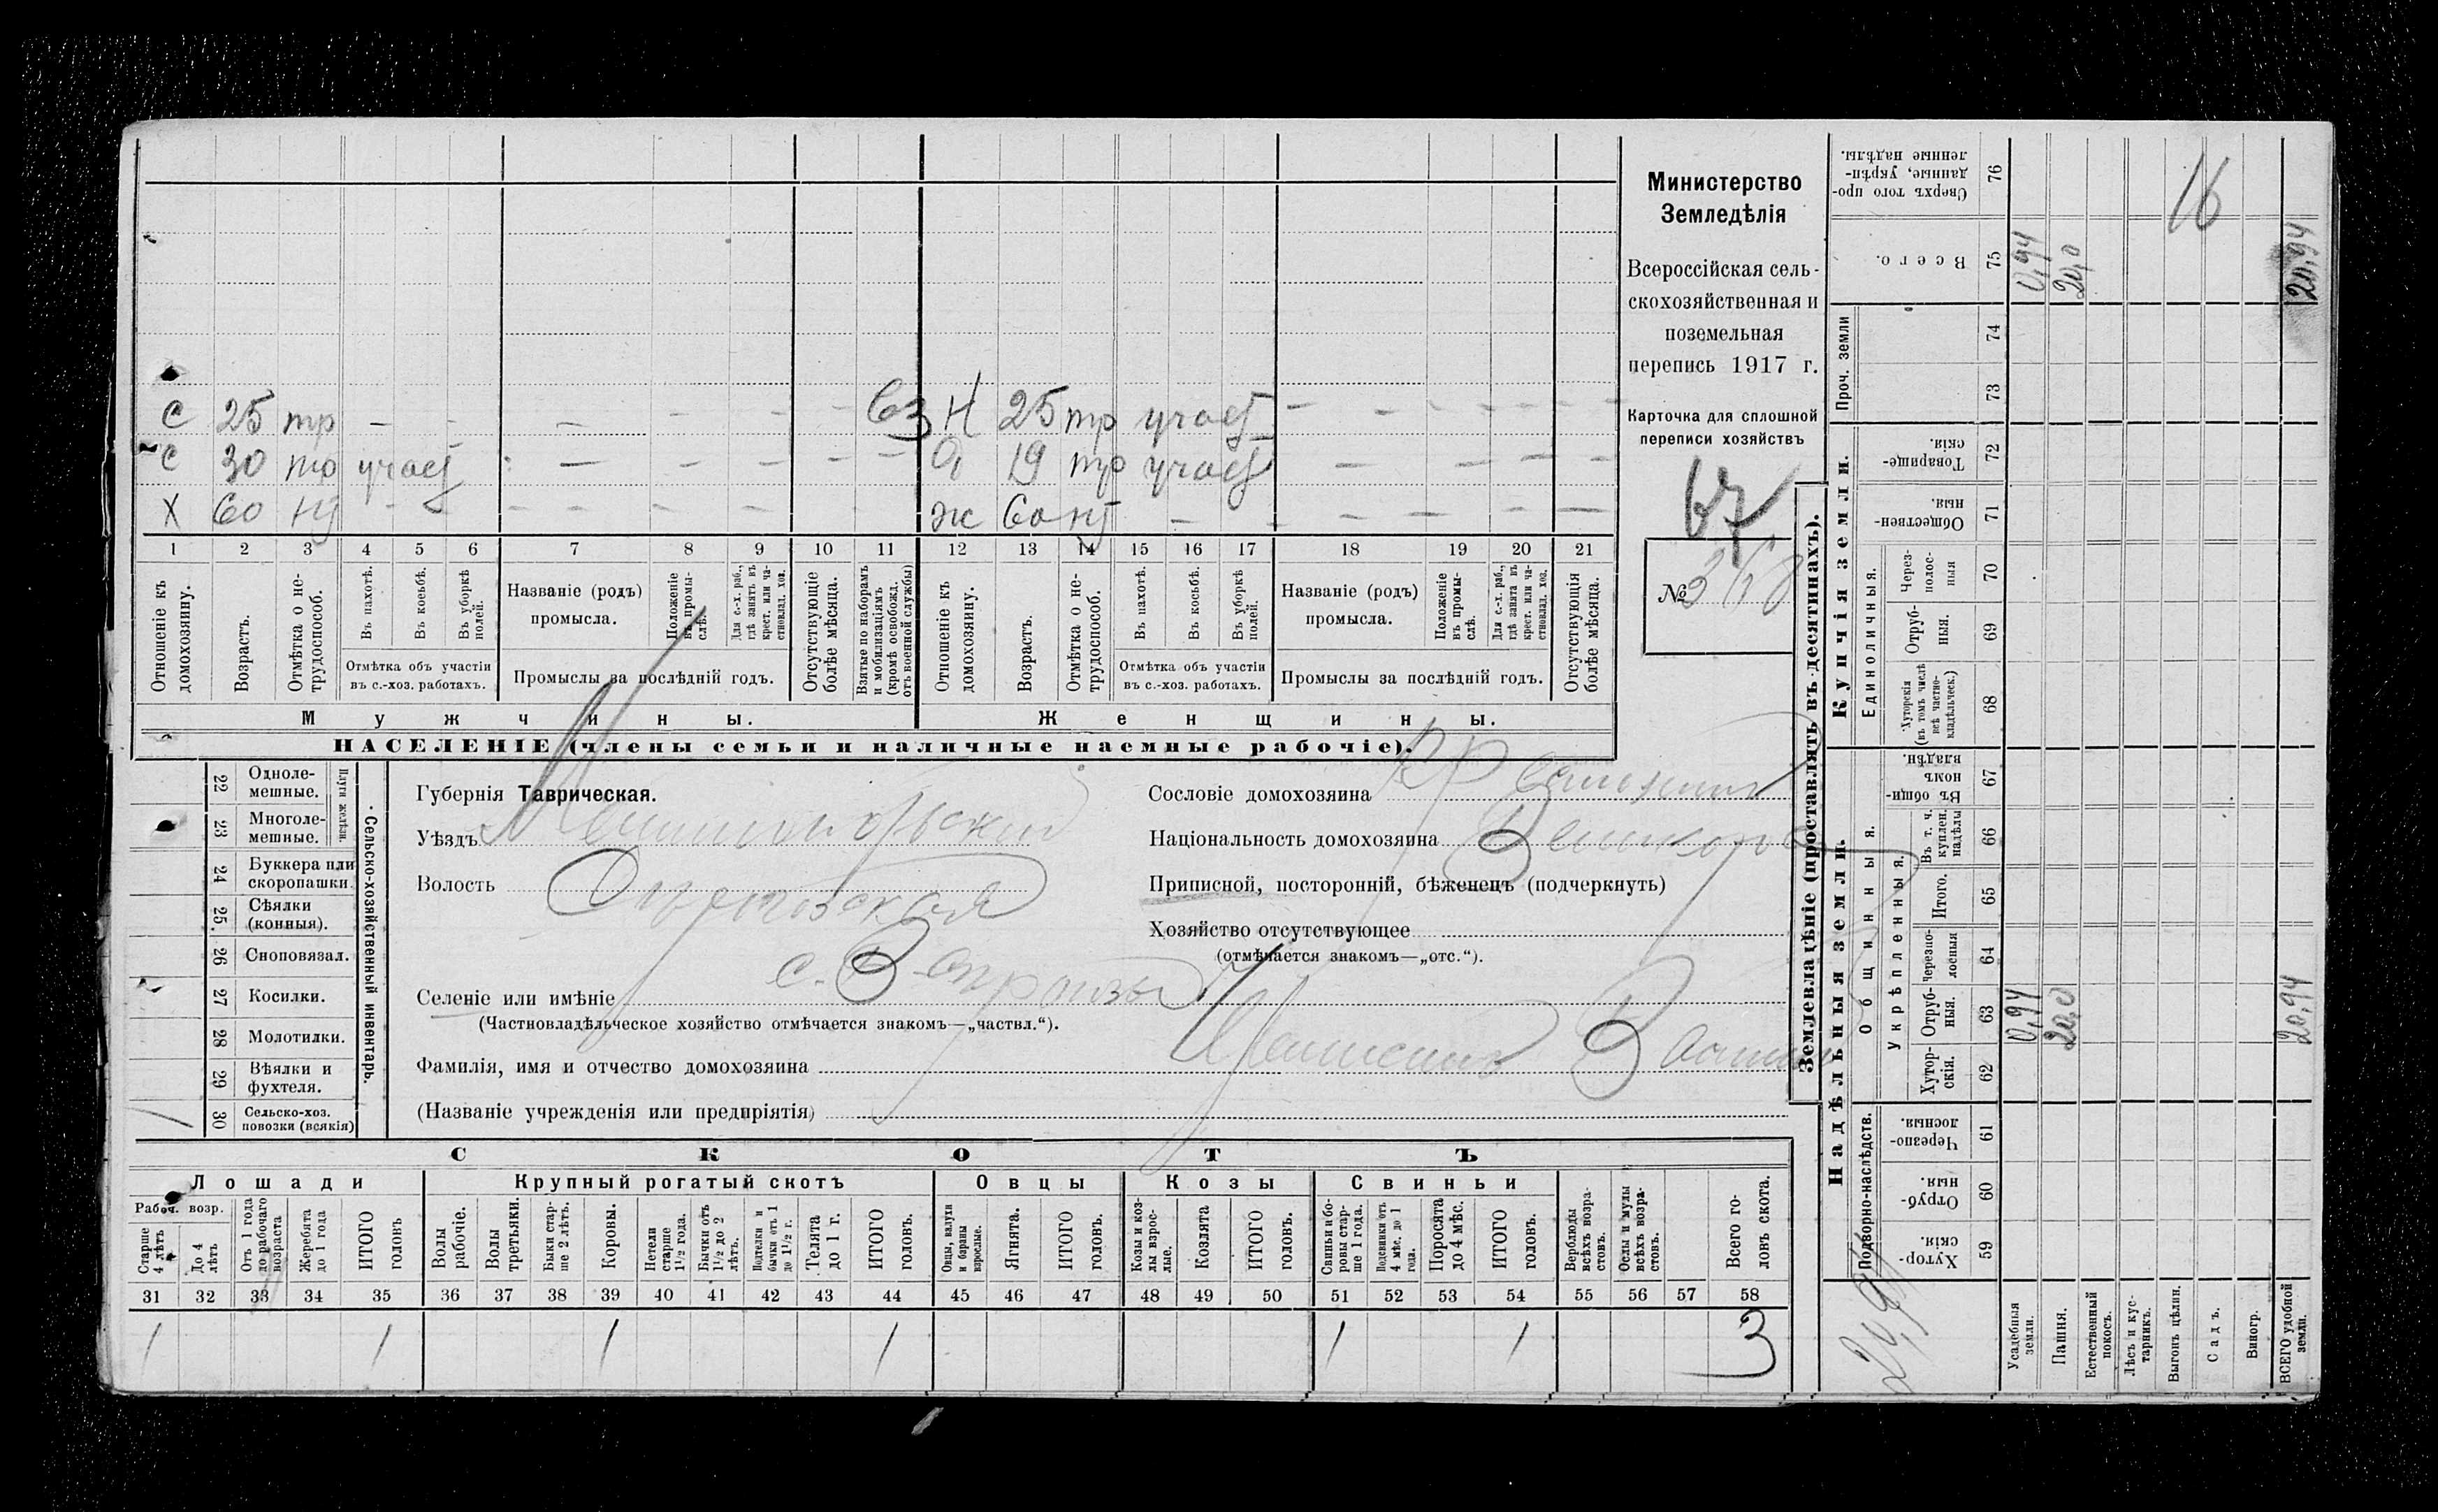 С 25 тр — - — - — - — вз Н 25 тр участ — — — — — —
С 30 тр участ — — — — — 19 тр участ — — — —
Х 60 нт - - — — — — — ж 60 нт — — — — — —
1 2 3 4 5 6 7 8 9 10 11 12 13 14 15 16 17 18 19 20 21
Отношеніе къ домохозяину.
Возрастъ.
Отмѣтка о не-
трудоспособ.
Въ пахотѣ.
Въ косьбѣ.
Въ уборкѣ
полей.
Отмѣтка объ участіи
въ с.-хоз. работахъ.
Названіе (родъ)
промысла.
Положеніе
въ промы-
слѣ.
Для с.-х. раб.,
гдѣ занятъ въ
крест. или ча-
стновлад. хоз.
Промыслы за послѣдній годъ.
Отсутствующіе
болѣе мѣсяца.
Взятые по наборамъ
и мобилизаціямъ
(кромѣ освобожд.
отъ военной службы)
Отношеніе къ
домохозяину.
Возрастъ.
Отмѣтка о не-
трудоспособ.
Въ пахотѣ.
Въ косьбѣ.
Въ уборкѣ
полей.
Отмѣтка объ участіи
въ с.-хоз. работахъ.
Названіе (родъ)
промысла.
Положеніе
въ промы-
слѣ.
Для с.-х. раб.,
гдѣ занята въ
крест. или ча-
стновлад. хоз.
Промыслы за послѣдній годъ.
Отсутствующія
болѣе мѣсяца.
Мужчины.
Женщины.
НАСЕЛЕНІЕ (члены семьи и наличные наемные рабочіе).
Министерство
Земледѣлія
Всероссійская сель-
скохозяйственная и
поземельная
перепись 1917 г.
Карточка для сплошной
переписи хозяйствъ
67
№ 368
22 Одноле-
мешные.
23 Многоле-
мешные.
Плуги желѣзн.
24 Буккера или
скоропашки.
25. Сѣялки
(конныя).
26 Сноповязал.
27 Косилки.
28 Молотилки.
29 Вѣялки и
фухтеля.
/ 30 Сельско-хоз.
повозки (всякія)
Сельско-хозяйственный инвентарь.
Губернія Таврическая.
Уѣздъ Мелитопольский
Волость
Селеніе или имѣніе с.
(Частновладѣльческое хозяйство отмѣчается знакомъ—„частвл.“).
Фамилія, имя и отчество домохозяина
(Названіе учрежденія или предпріятія)
Сословіе домохозяина
Національность домохозяина Великорос
Приписной, посторонній, бѣженецъ (подчеркнуть)
Хозяйство отсутствующее
(отмѣчается знакомъ—„отс.“).
СКОТЪ
Лошади
Рабоч. возр.
Старше
4 лѣтъ
До 4
лѣтъ
Отъ 1 года
до рабочаго
возраста
Жеребята
до 1 года
ИТОГО
головъ
Крупный рогатый скотъ
Волы
рабочіе.
Волы
третьяки.
Быки стар-
ше 2 лѣтъ.
Коровы.
Нетели
старше
1½ года.
Бычки отъ
1½ до 2
лѣтъ.
Подтелки и
бычки отъ 1
до 1½ г.
Телята
до 1 г.
ИТОГО
головъ.
Овцы
Овцы, валухи
и бараны
взрослые.
Ягнята.
ИТОГО
головъ.
Козы
Козы и коз-
лы взрос-
лые.
Козлята
ИТОГО
головъ.
Свиньи
Свиньи и бо-
ровы стар-
ше 1 года.
Подсвинки отъ
4 мѣс. до 1
года.
Поросята
до 4 мѣс.
ИТОГО
головъ.
Верблюды
всѣхъ возра-
стовъ.
Ослы и мулы
всѣхъ возра-
стовъ.
Всего го-
ловъ скота.
31 32 33 34 35 36 37 38 39 40 41 42 43 44 45 46 47 48 49 50 51 52 53 54 55 56 57 58
1 1 1 1 1 1 3
Землевладѣніе (проставлять въ десятинахъ).
Надѣльныя земли.
Подворно-наслѣдств.
Хутор-
скія. 59
Отруб-
ныя. 60
Черезпо-
лосныя. 61
Общинныя.
Укрѣпленныя.
Хутор-
скія. 62
Отруб-
ныя. 63 0,94 20,0 20,94
Черезпо-
лосныя 64
Итого. 65
Въ т. ч.
куплен.
надѣлы 66
Въ общи-
номъ
владѣн. 67
Купчія земли.
Единоличныя.
Хуторскія
(въ томъ числѣ
всѣ частно-
владѣльческ.) 68
Отруб-
ныя. 69
Через-
полос-
ныя 70
Обществен-
ныя. 71
Товарище-
скія. 72
Проч. земли
73
74
Всего. 75 0,94 20,0 20,94
Сверхъ того про-
данные, укрѣп-
ленные надѣлы. 76
16
20,94
Усадебныя
земли.
Пашня.
Естественный
покосъ.
Лѣсъ и кус-
тарникъ.
Выгонъ цѣлин.
Садъ.
Виногр.
ВСЕГО удобной
земли.